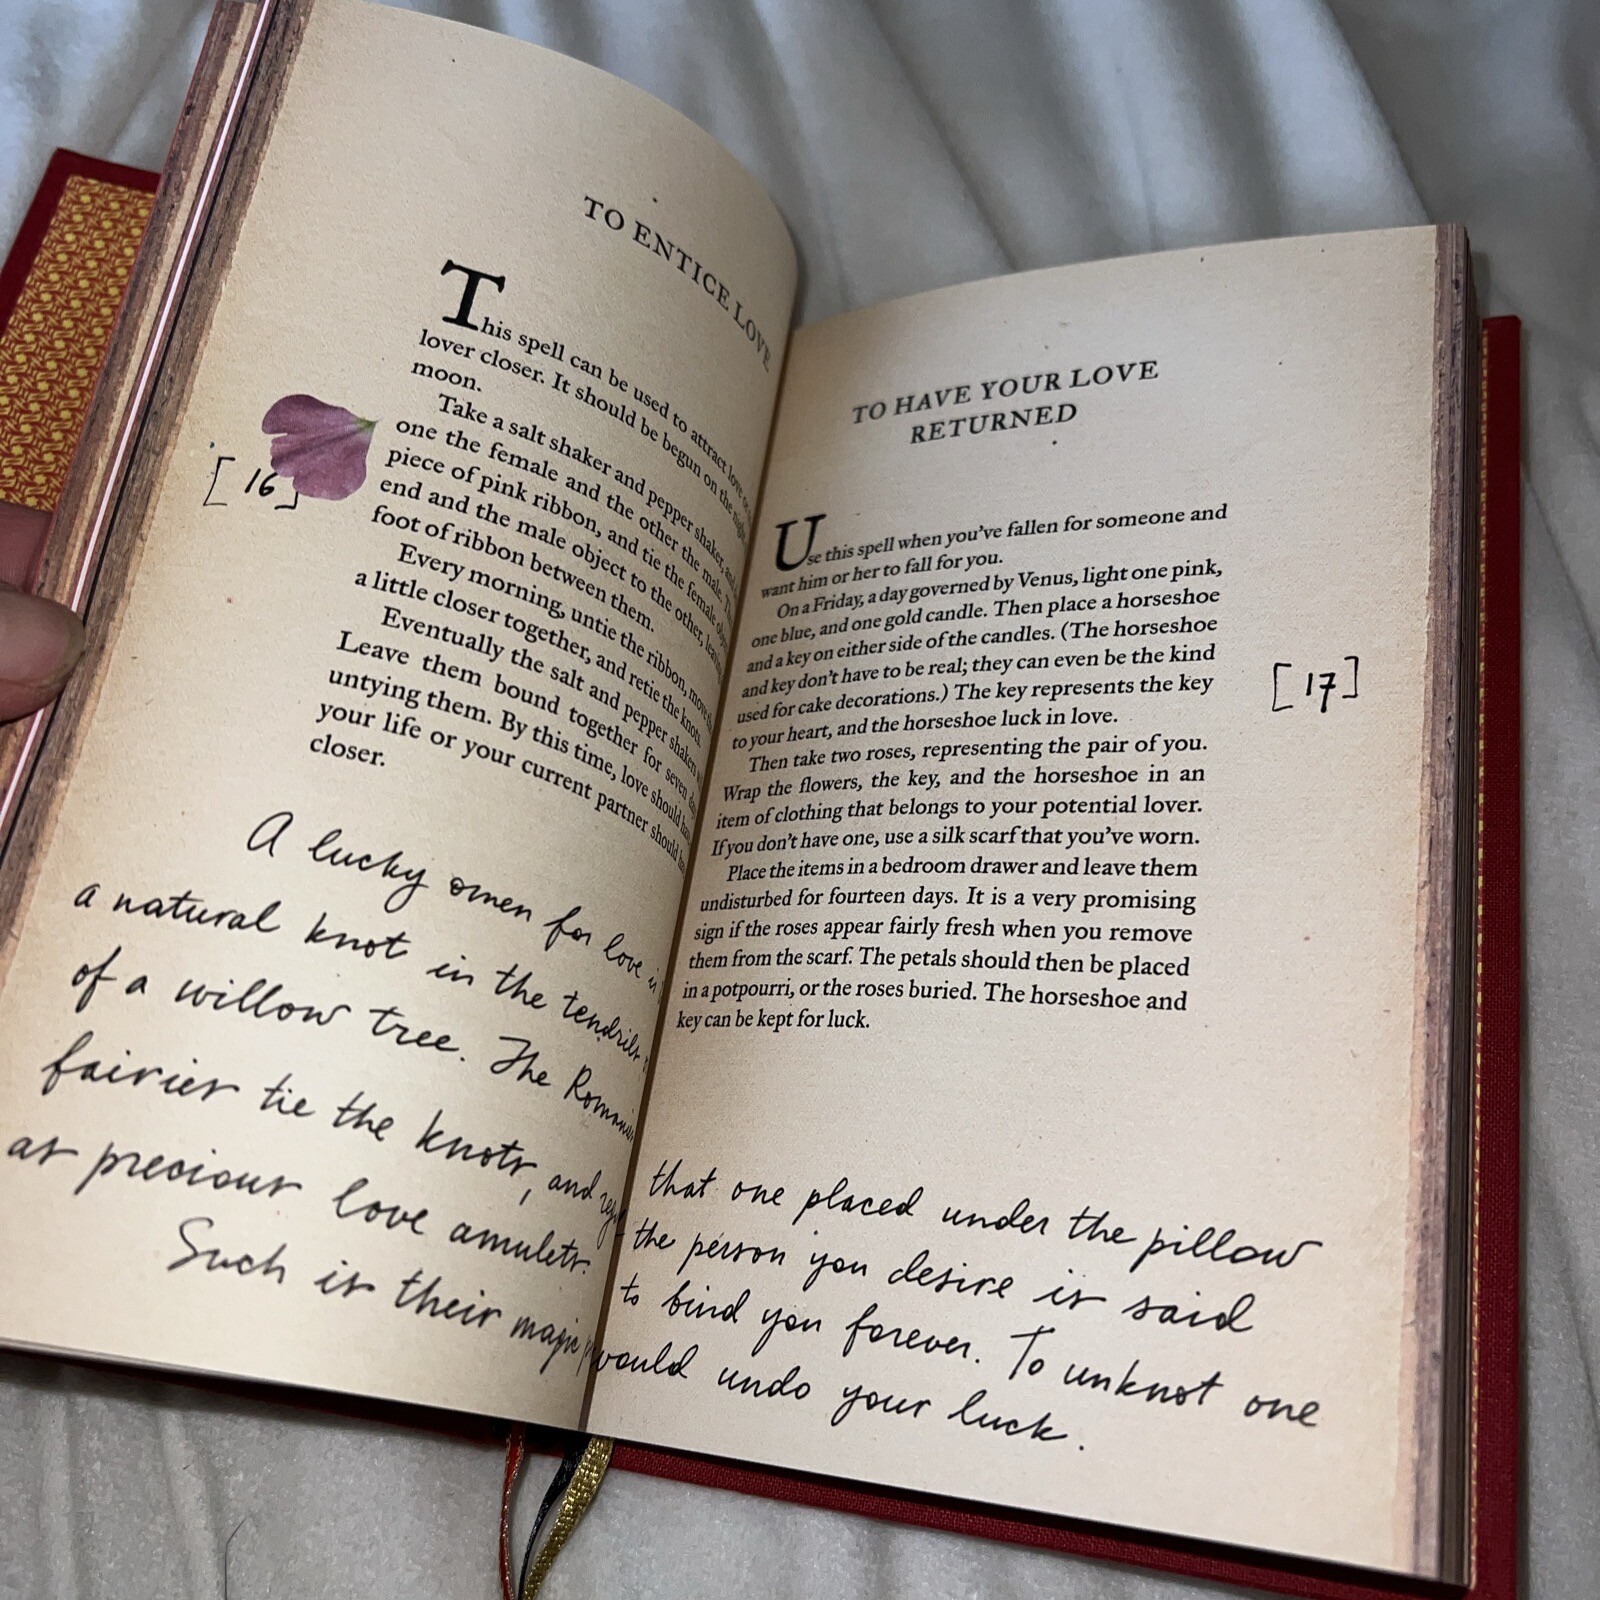 TO ENTICE LOVE
This spell can be used to attract love or
lover closer. It should be begun on the night
moon.
Take a salt shaker and pepper shaker,
one the female and the other the male.
piece of pink ribbon, and tie the female
end and the male object to the other, leaving
foot of ribbon between them.
Every morning, untie the ribbon, move
a little closer together, and retie the knots.
Eventually the salt and pepper shakers
Leave them bound together for seven
untying them. By this time, love should
your life or your current partner should
closer.
[16]
A lucky omen for love
a natural knot in the tendrils
of a willow tree. The
fairies tie the knots, and
as precious love amulets.
Such is their magic
TO HAVE YOUR LOVE
RETURNED
Use this spell when you've fallen for someone and
want him or her to fall for you.
On a Friday, a day governed by Venus, light one pink,
one blue, and one gold candle. Then place a horseshoe
and a key on either side of the candles. (The horseshoe
and key don't have to be real; they can even be the kind
used for cake decorations.) The key represents the key
to your heart, and the horseshoe luck in love.
Then take two roses, representing the pair of you.
Wrap the flowers, the key, and the horseshoe in an
item of clothing that belongs to your potential lover.
If you don't have one, use a silk scarf that you've worn.
Place the items in a bedroom drawer and leave them
undisturbed for fourteen days. It is a very promising
sign if the roses appear fairly fresh when you remove
them from the scarf. The petals should then be placed
in a potpourri, or the roses buried. The horseshoe and
key can be kept for luck.
[17]
that one placed under the pillow
the person you desire is said
to bind you forever. To unknot one
would undo your luck.